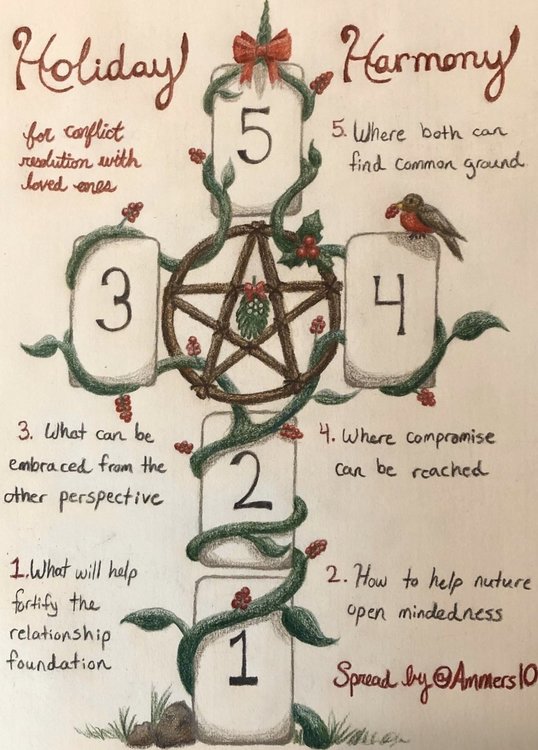 Holiday Harmony
for conflict
resolution with
loved ones
5
5. Where both can
find common ground
3
4
3. What can be
embraced from the
other perspective
4. Where compromise
can be reached
2
1. What will help
fortify the
relationship
foundation
2. How to help nuture
open mindedness
1
Spread by @Ammers10